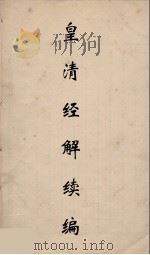 皇清经解续编
mtoou.info